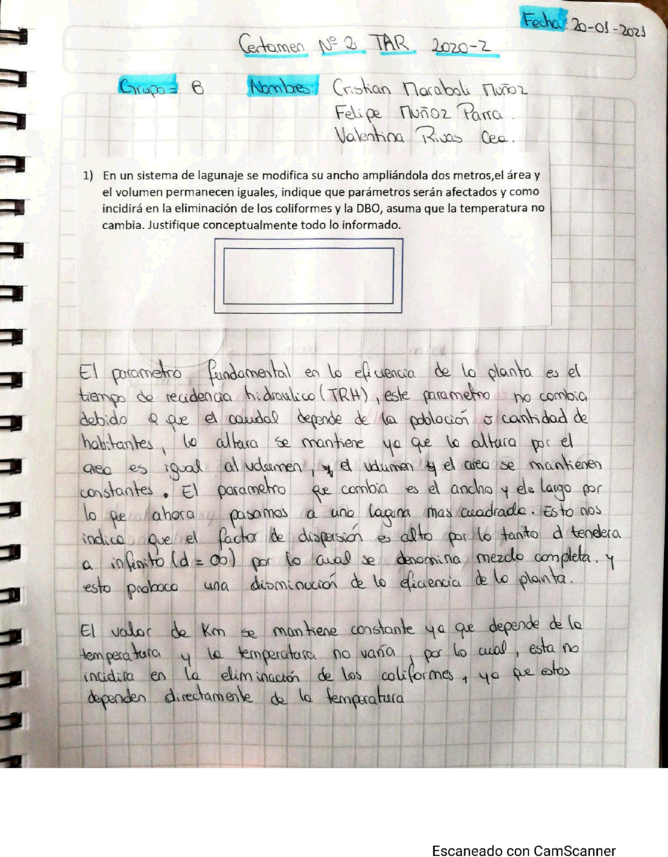 Fecha: 20-01-2021
Certamen Nº 2 TAR 2020-2
Grupo = 6 Nombres: Cristian Marabolí Muñoz
Felipe Muñoz Parra.
Valentina Rivas Cea.
1) En un sistema de lagunaje se modifica su ancho ampliándola dos metros,el área y
el volumen permanecen iguales, indique que parámetros serán afectados y como
incidirá en la eliminación de los coliformes y la DBO, asuma que la temperatura no
cambia. Justifique conceptualmente todo lo informado.
El parametro fundamental en la eficiencia de la planta es el
tiempo de recidencia hidraulico (TRH), este parametro no cambia
debido a que el caudal depende de la población o cantidad de
habitantes, la altura se mantiene ya que la altura por el
area es igual al volumen, y el volumen y el area se mantienen
constantes. El parametro que cambia es el ancho y el largo por
lo que ahora pasamos a una lagina mas cuadrada. Esto nos
indica que el factor de dispersión es alto por lo tanto d tendera
a infinito (d = ∞) por lo cual se denomina mezcla completa. y
esto proboca una disminución de la eficiencia de la planta.
El valor de Km se mantiene constante ya que depende de la
temperatura y la temperatura no varía, por lo cual, esta no
incidira en la eliminación de los coliformes, ya que estos
dependen directamente de la temperatura
Escaneado con CamScanner